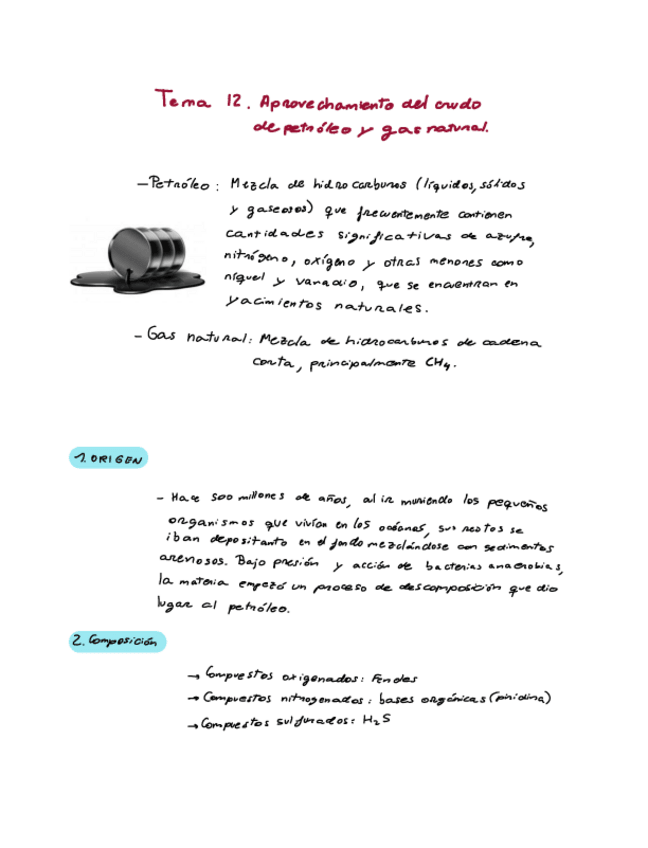 Tema 12. Aprovechamiento del crudo
de petróleo y gas natural.
- Petróleo: Mezcla de hidrocarburos (líquidos, sólidos
y gaseosos) que frecuentemente contienen
cantidades significativas de azufre,
nitrógeno, oxígeno y otras menores como
níquel y vanadio, que se encuentran en
yacimientos naturales.
- Gas natural: Mezcla de hidrocarburos de cadena
corta, principalmente CH₄.
1. ORIGEN
- Hace 500 millones de años, al ir muriendo los pequeños
organismos que vivían en los océanos, sus restos se
iban depositanto en el fondo mezclándose con sedimentos
arenosos. Bajo presión y acción de bacterias anaerobias,
la materia empezó un proceso de descomposición que dio
lugar al petróleo.
2. Composición
→ Compuestos oxigenados: Fenoles
→ Compuestos nitrogenados: bases orgánicas (piridina)
→ Compuestos sulfurados: H₂S